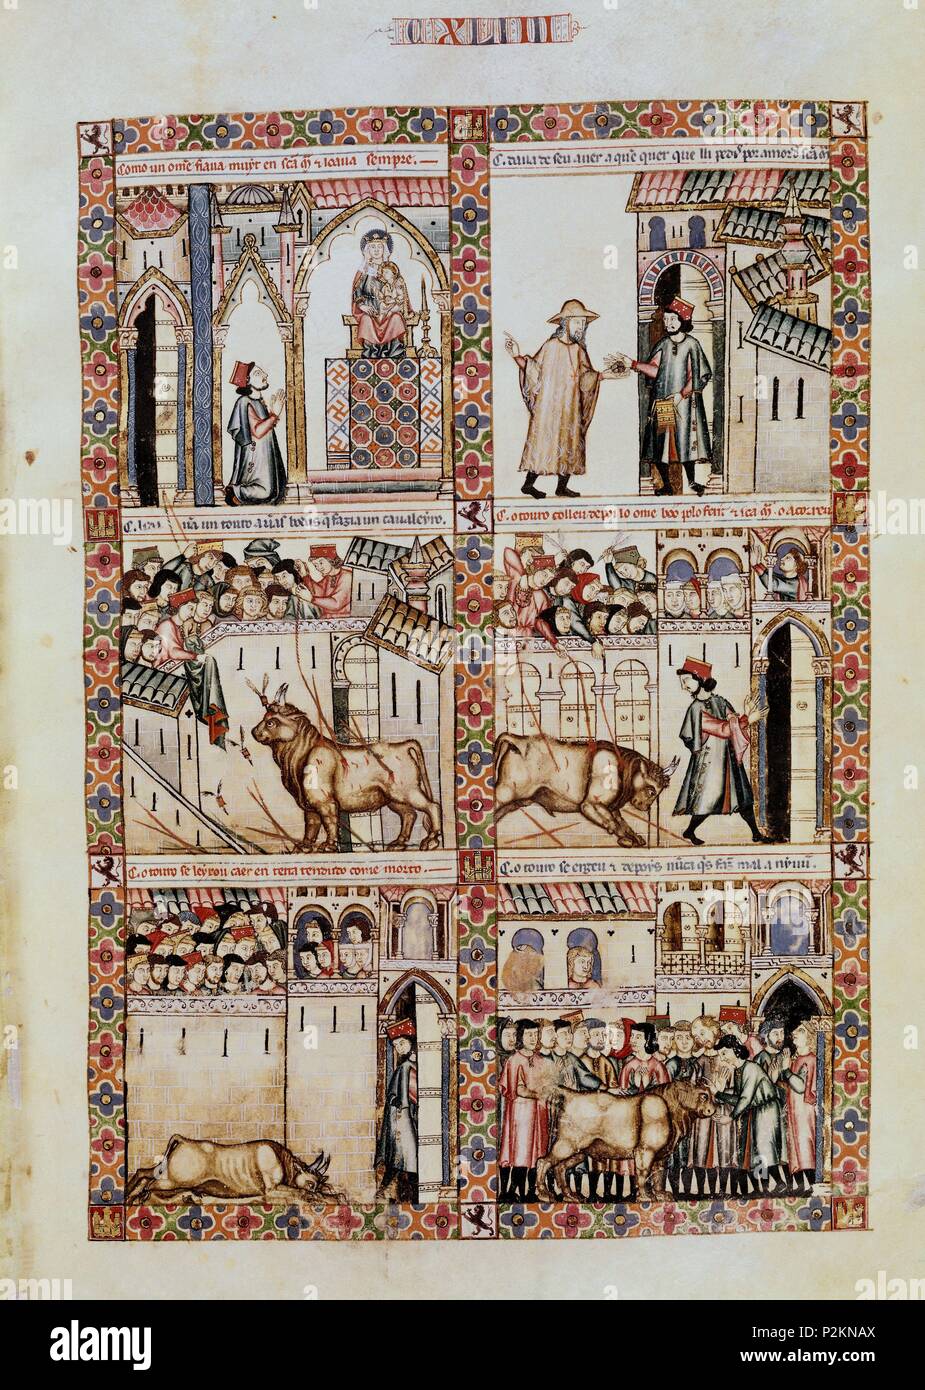 CXLIIII
Como un ome fiava muyt en scã mã & loava sempre.
C. dava de seu aver a quẽ quer que lli pedis por amor d scã mã
C. un touro a que fazia un cavaleyro.
C. o touro colleu depos lo ome boo polo ferir & scã mã o acorreu
C. o touro se leyxou caer en terra tendudo come morto.
C. o touro se ergeu & depoys nũca q̃s faz mal a nĩuu.
alamy
alamy stock photo
Image ID: 2P2KNAX
www.alamy.com